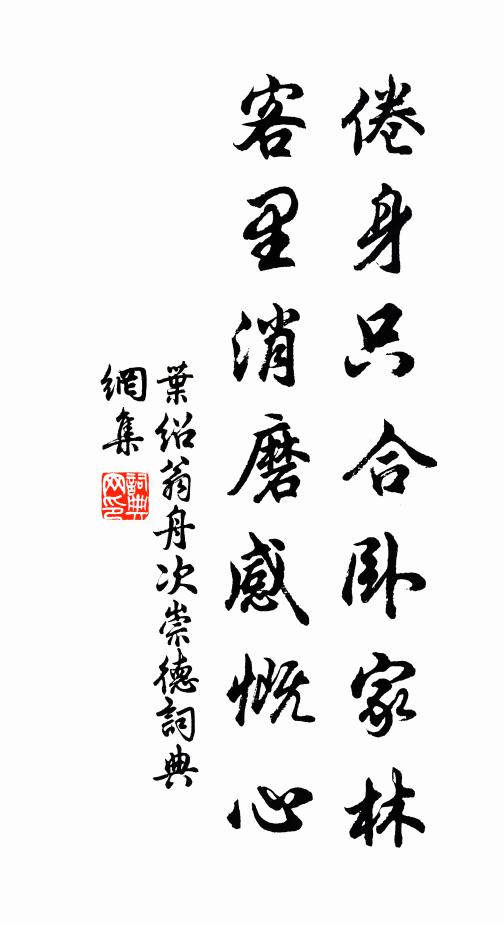 倦身只合卧家林
客里消磨感慨心
葉紹翁舟次崇德詞典
網集
詞典
网印